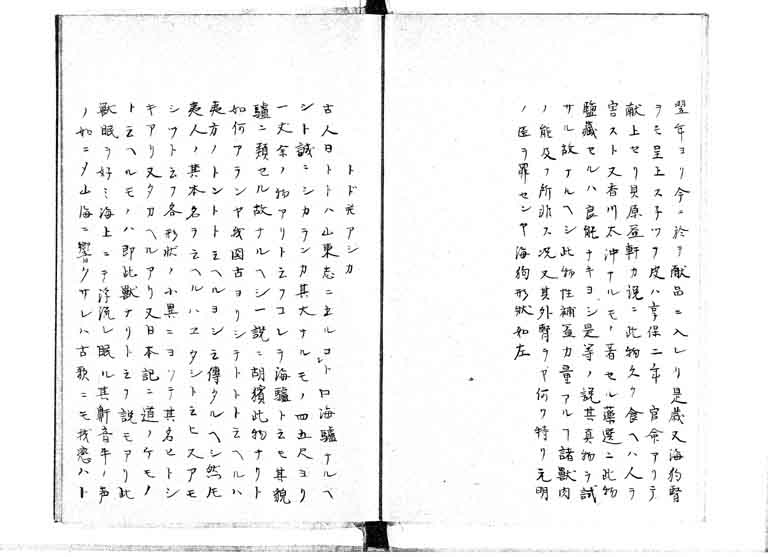 翌年ヨリ今ニ於ヲ献品ニ入レリ是歳又海狗腎
ヲモ呈上スネツフ皮ハ享保二年 官命アリテ
献上セリ貝原益軒カ説ニ此物久ク食ヘハ人ヲ
害スト又香川太沖ナルモノ著セル薬選ニ此物
鹽藏セルハ良能ナキヨシ是等ノ説其真物ヲ試
サル故ナルヘシ此物性補益力量アルフ諸獣肉
ノ能及フ所非ス况又其外腎ヲヤ何ソ特リ元明
ノ医ヲ罪センヤ海狗形状如左
トド并アシカ
古人曰トトハ山東志ニ出ルコトロ海驢ナルヘ
シト誠ニシカランカ其大ナルモノ四五尺ヨリ
一丈余ノ物アリト云フコレヲ海驢ト云モ其貌
驢ニ類セル故ナルヘシ一説ニ胡獱此物ナリト
如何アランヤ我国古ヨリシテトトト云ヘルハ
夷方ノトントト云ヘルヨシ云傳タルヘシ然圧
夷人ノ其本名ヲ云ヘルハヱタシト云ヒスアモ
シツト云フ各形状ノ小異ニヨリテ其名ヒトシ
キアリ又タカヘルアリ又日本記ニ道ノケモノ
ト云ヘルモノハ即此獣ナリト云フ説モアリ此
獣眠ヲ好ミ海上ニテ浮流レ眠ル其鼾音牛ノ声
ノ如ニメ山海ニ響クサレハ古歌ニモ我恋ハト